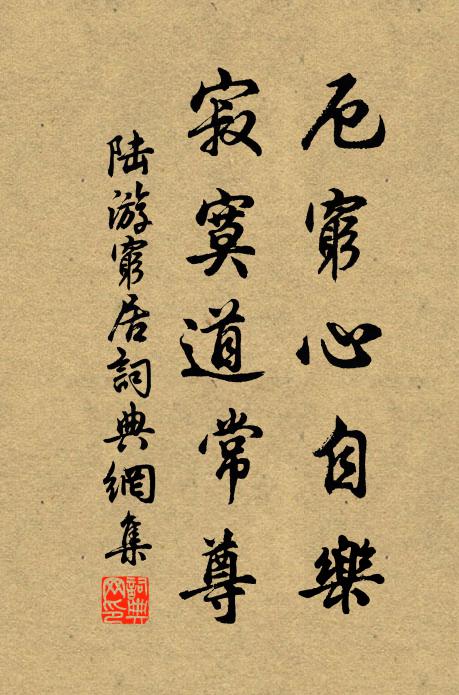 厄窮心自樂
寂寞道常尊
陆游窮居詞典網集
詞典网印